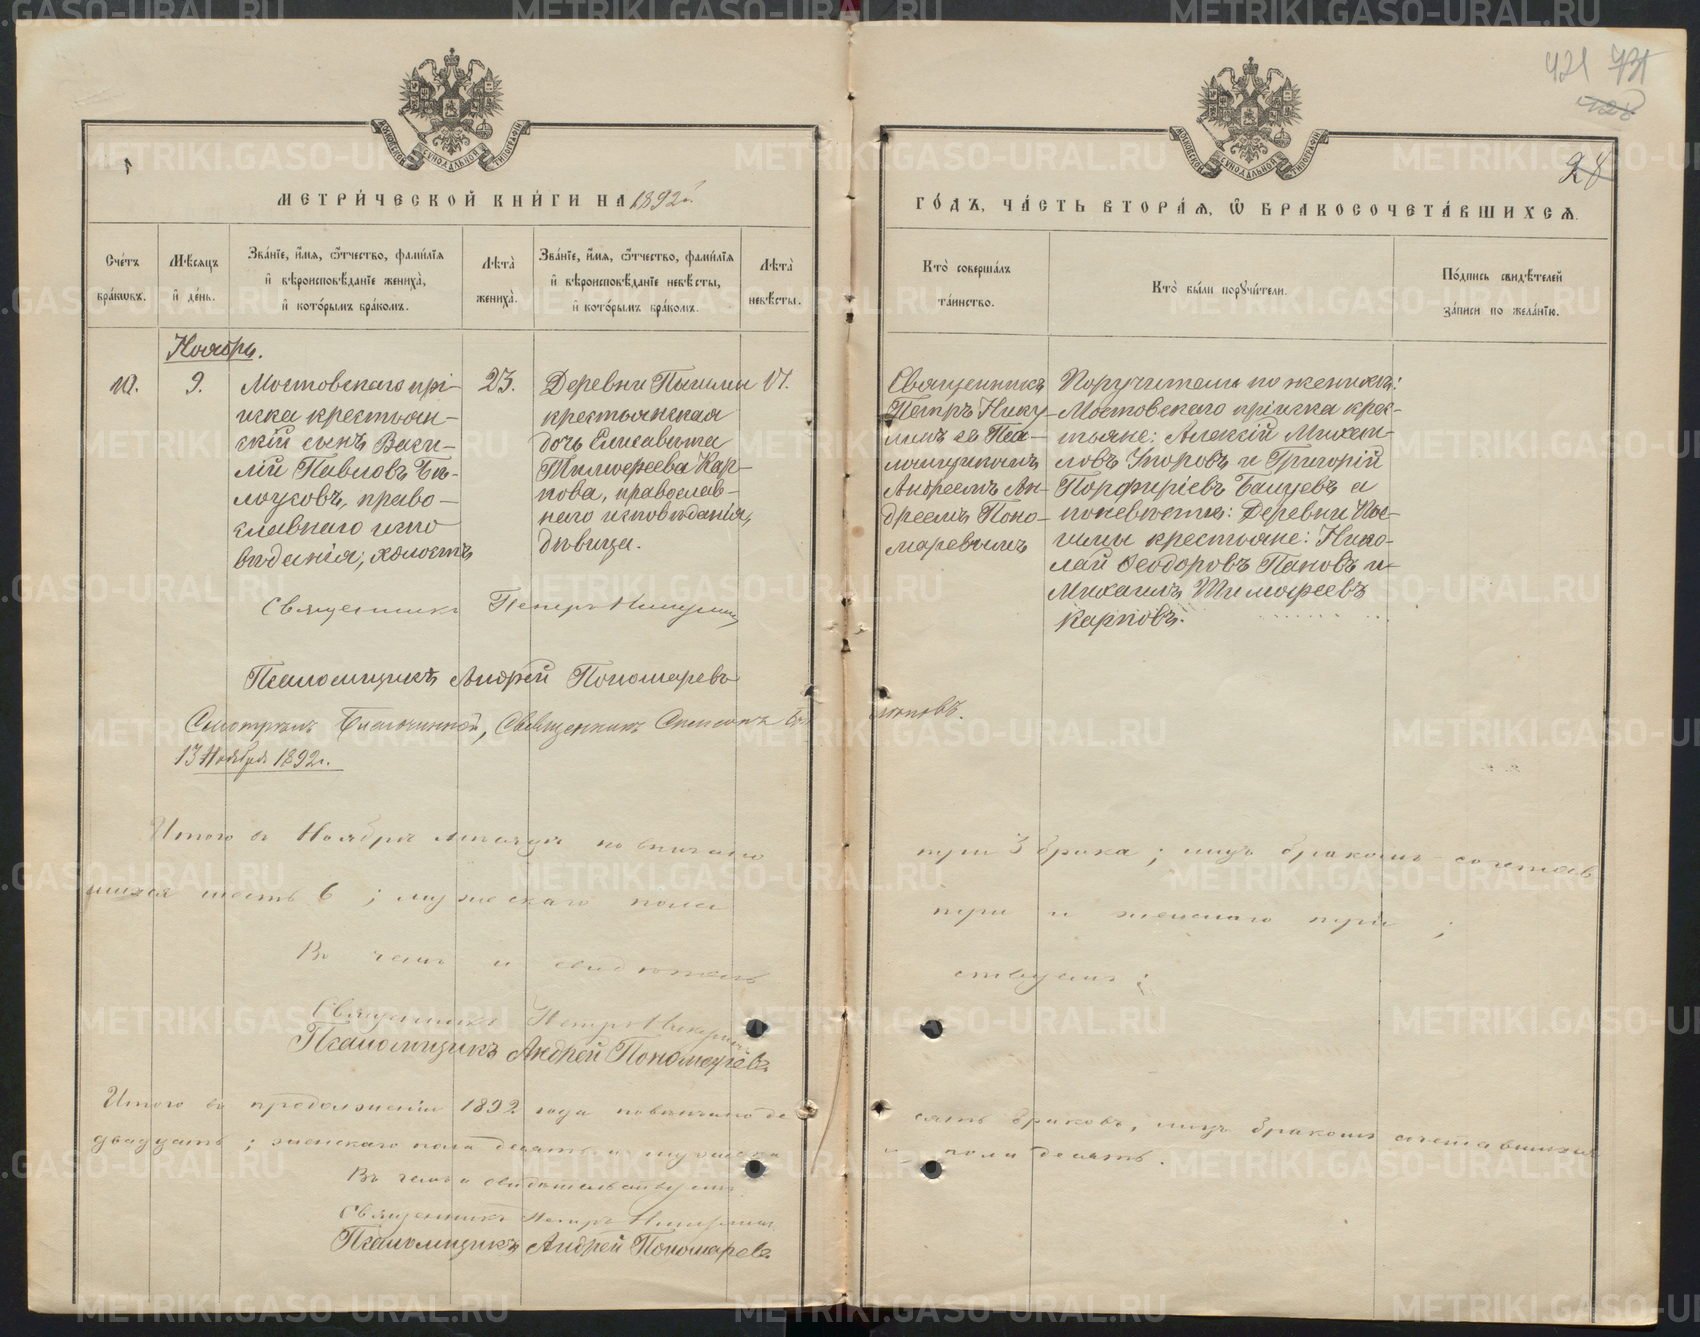 421 731
28
МОСКОВСКОЙ СѴНОДАЛЬНОЙ ТИПОГРАФІИ
МОСКОВСКОЙ СѴНОДАЛЬНОЙ ТИПОГРАФІИ
МЕТРИ́ЧЕСКОЙ КНИ́ГИ НА 1892 г.
ГО́ДЪ, ЧА́СТЬ ВТОРА́Ѧ, Ѽ БРАКОСОЧЕТА́ВШИХСѦ.
Сче́тъ бра́кѡвъ.
Мѣ́сѧцъ и҆ де́нь.
Зва́нїе, и҆́мѧ, ѻ҆́тчество, фами́лїѧ и҆ вѣроисповѣ́данїе жениха̀, и҆ кото́рымъ бра́комъ.
Лѣта̀ жениха̀.
Зва́нїе, и҆́мѧ, ѻ҆́тчество, фами́лїѧ и҆ вѣроисповѣ́данїе невѣ́сты, и҆ кото́рымъ бра́комъ.
Лѣта̀ невѣ́сты.
Кто̀ соверша́лъ та́инство.
Кто̀ бы́ли порꙋчи́тели.
По́дпись свидѣ́телей за́писи по жела́нїю.
Ноябрь.
10.
9.
Мостовскаго прі-
иска крестьян-
скій сынъ Васи-
лій Павловъ Бѣ-
лоусовъ, право-
славнаго испо
вѣданія, холостъ
23.
Деревни Пышмы
крестьянская
дочь Елисавета
Тимофеева Кар-
пова, православ-
наго исповѣданія,
дѣвица.
17.
Священникъ
Петръ Нику-
линъ съ Пса-
ломщикомъ
Андреемъ Ан-
дреевъ Поно-
маревымъ
Поручители по женихѣ:
Мостовскаго пріиска крес-
тьяне: Алексій Михаи-
ловъ Упоровъ и Григорій
Порфиріевъ Банцевъ а
по невѣстѣ: Деревни Пы-
шмы крестьяне: Нико-
лай Ѳеодоровъ Пановъ и
Михаилъ Тимофеевъ
Карповъ.
Священникъ Петръ Никулинъ
Псаломщикъ Андрей Пономаревъ
Смотрѣлъ Благочинный, Священникъ Симеонъ
13 Ноября 1892 г.
Итого въ Ноябрѣ мѣсяцѣ повѣнчано три 3 брака; лицъ бракомъ сочетав
шихся шесть 6; мужескаго пола три и женскаго три;
Въ чемъ и свидѣтельствуемъ:
Священникъ Петръ Никулинъ
Псаломщикъ Андрей Пономаревъ
Итого въ продолженіи 1892 года повѣнчано десять браковъ, лицъ бракомъ сочетавшихся
двадцать; женскаго пола десять и мужеска пола десять.
Въ чемъ и свидѣтельствуемъ
Священникъ Петръ Никулинъ
Псаломщикъ Андрей Пономаревъ
METRIKI.GASO-URAL.RU